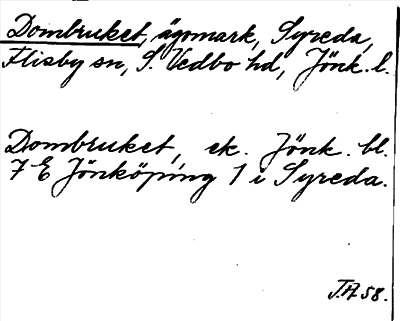 Dombruket, ägomark, Syreda,
Flisby sn, S. Vedbo hd, Jönk. l.
Dombruket, ek. Jönk. bl.
7 E Jönköping 1 i Syreda.
J.A 58.